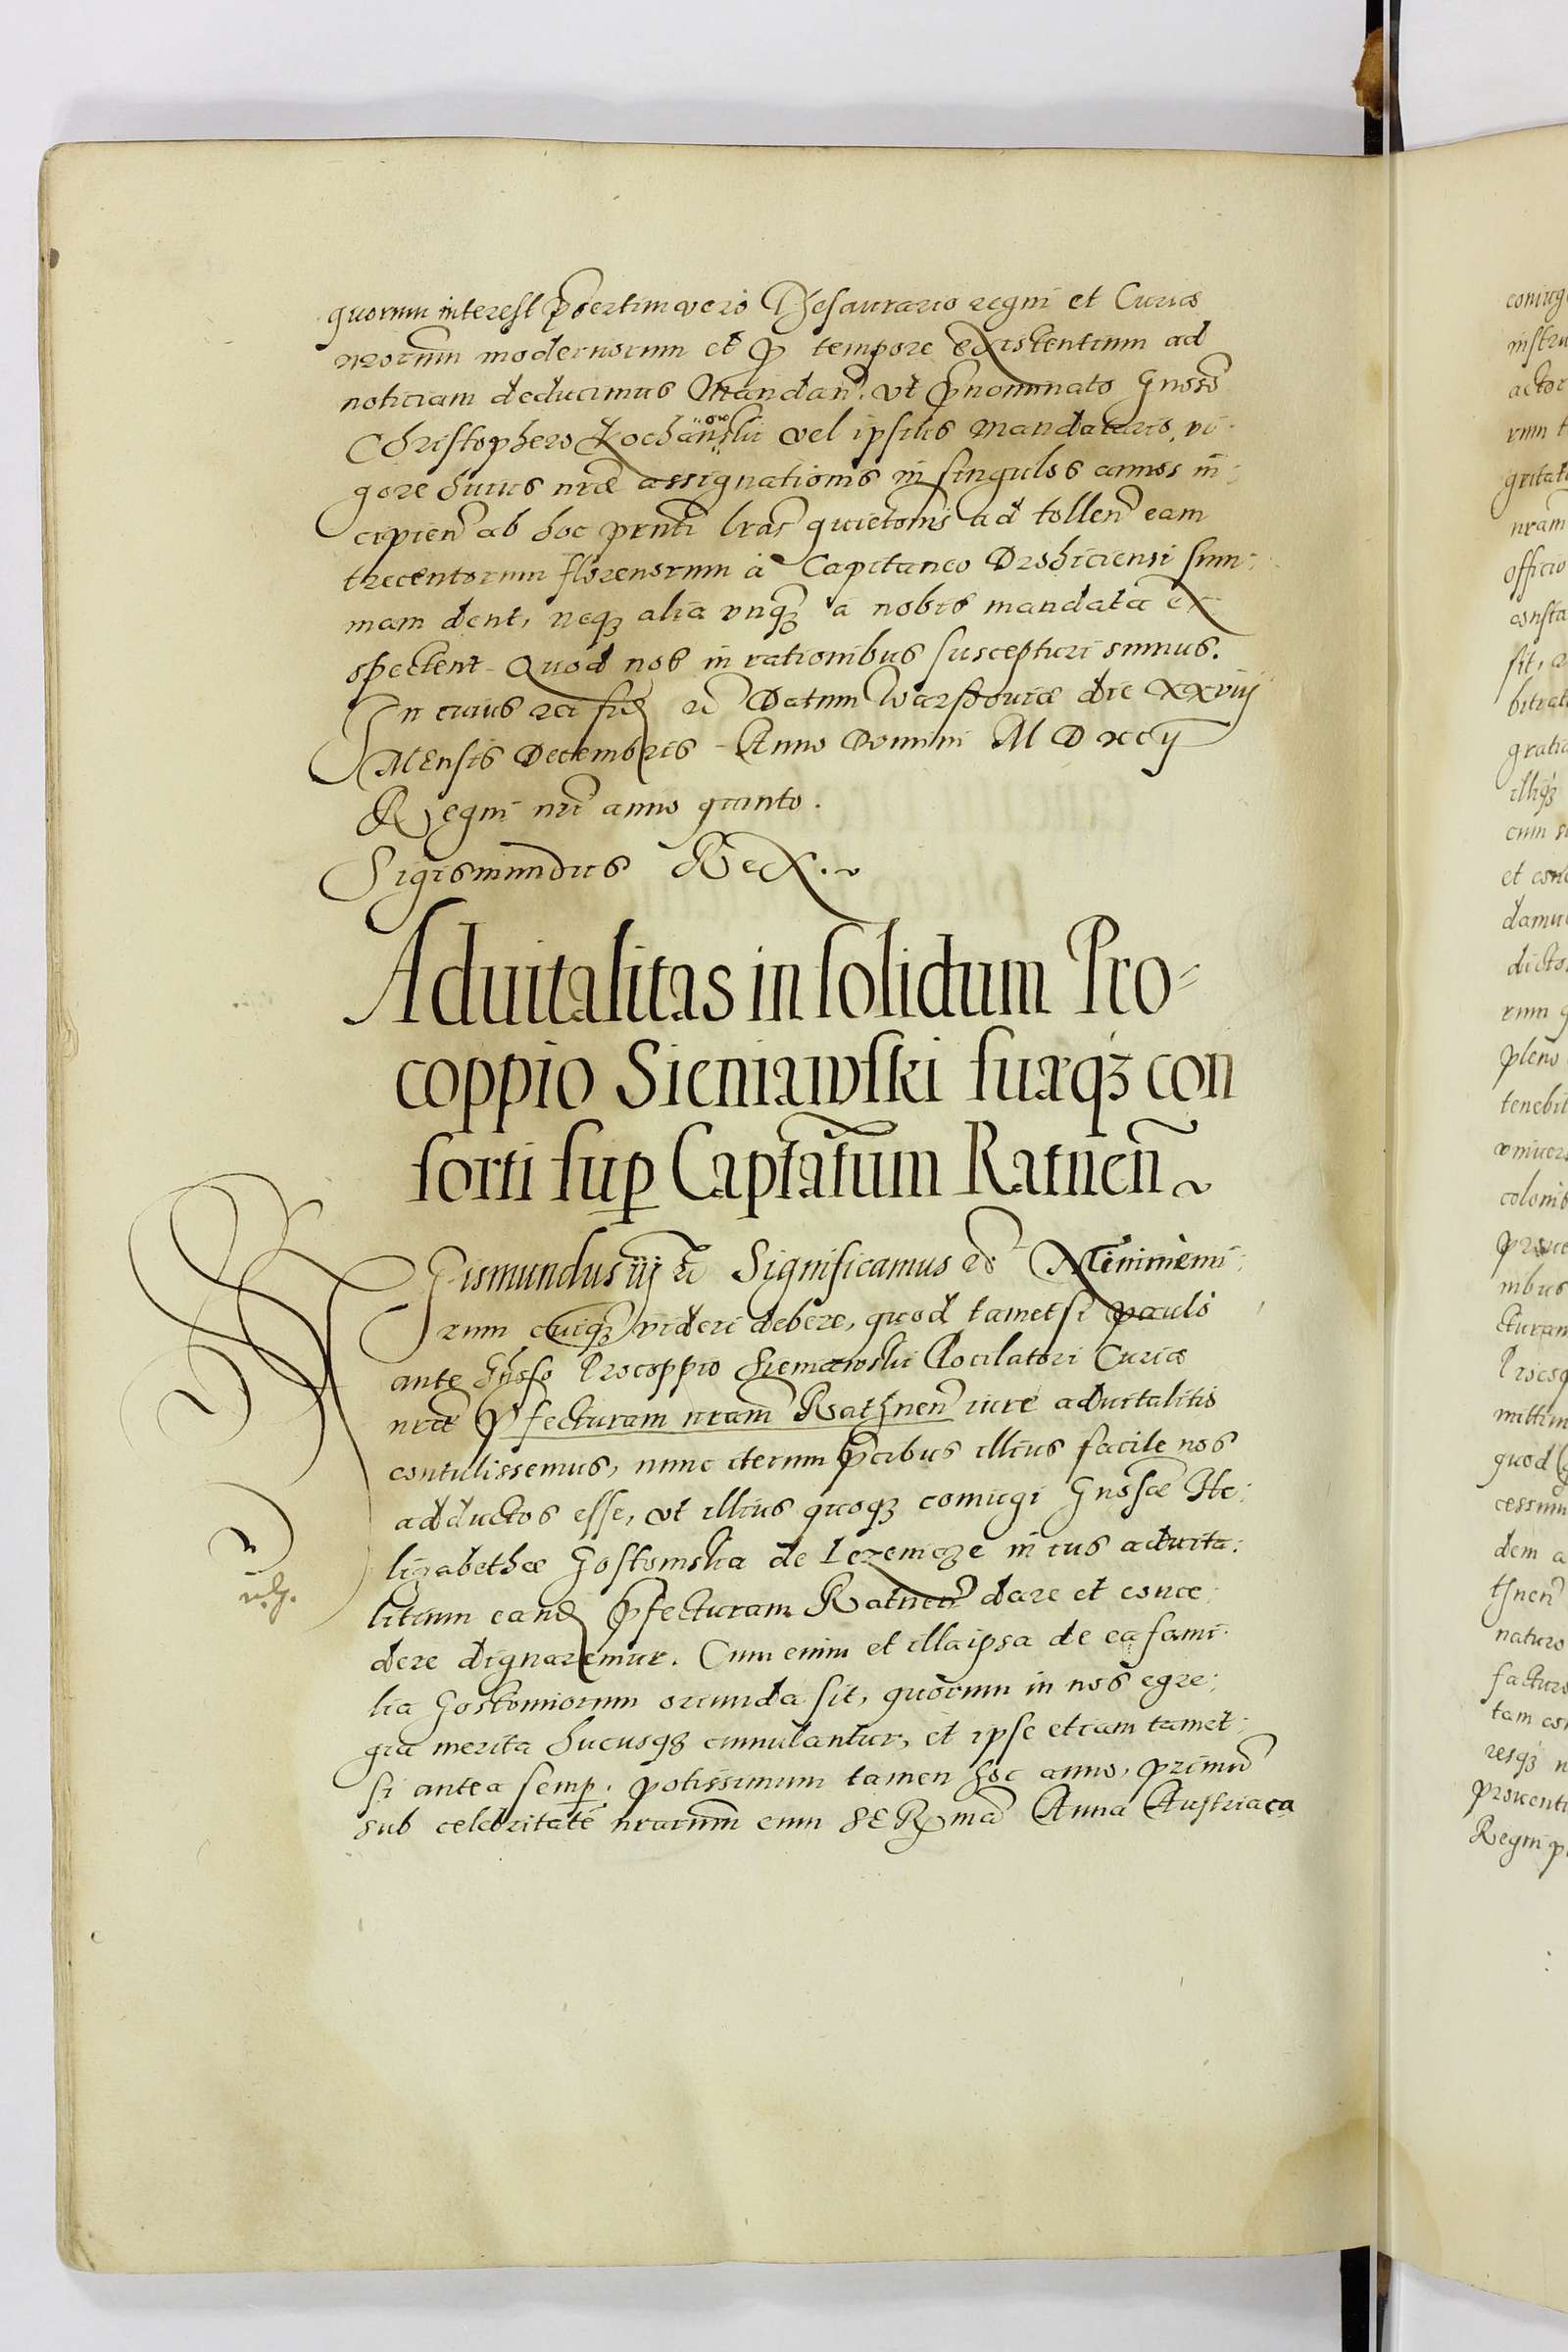 quorum interest p̃sertim vero Thesaurario regni et Curiæ
nrorum modernorum et p tempore existentium ad
noticiam deducimus Mandan̄. vt p̃nominato Gnoso
Christophero Kochanski vel ipsius mandatario, vi-
gore huius nræ assignationis in singulos annos in:
cipien̄ ab hoc prnti lras quietationis ad tollen̄ eam
trecentorum florenorum à Capitaneo Drohiciensi sum:
mam dent, neqz alia vnqz a nobis mandata ex
spectent. Quod nos in rationibus suscepturi sumus.
In cuius rei fid Datum Warsoviæ die xxviij
Mensis Decembris Anno Domini M D xcij
Regni nri anno quinto.
Sigismundus Rex.
Aduitalitas in solidum Pro-
coppio Sieniawski suæqz con
sorti sup Captātum Ratnen̄
Sigismundus iij Significamus Neminem mi:
rum cuiqz videri debere, quod tametsi paulo
ante Gnoso Procoppio Sieniawski Pocilatori Curiæ
nræ P̃fecturam nram Rathnen̄ iure aduitalitio
contulissemus, nunc iterum p̃cibus illius facile nos
adductos esse, vt illius quoqz coniugi Gnosæ He:
lizabethæ Gostomska de Lezenicze in ius aduita:
litium eand p̃fecturam Ratnen̄ dare et conce:
dere dignaremur. Cum enim et illa ipsa de ea fami:
lia Gostomiorum oriunda sit, quorum in nos egre:
gia merita hucusqz cumulantur, et ipse etiam tamet:
si antea semp. potissimum tamen hoc anno, primū
sub celebritate nrarum cum SERma Anna Austriaca